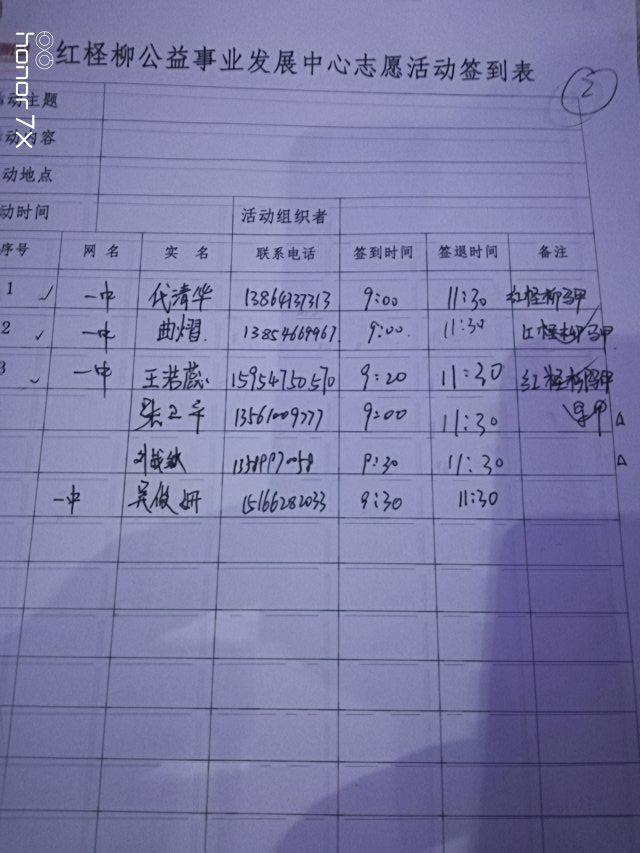 honor 7X
红柽柳公益事业发展中心志愿活动签到表
2
动主题
动内容
动地点
动时间 活动组织者
序号 网名 实名 联系电话 签到时间 签退时间 备注
1 ✓ 一中 代清华 13864737313 9:00 11:30 红柽柳马甲
2 ✓ 一中 曲熠 13854669967 9:00 11:30 红柽柳马甲
3 ✓ 一中 王若蕊 15954750570 9:20 11:30 红柽柳马甲
13561009777 9:00 11:30 马甲 △
9:30 11:30 △
一中 吴俊妍 15166282033 9:30 11:30